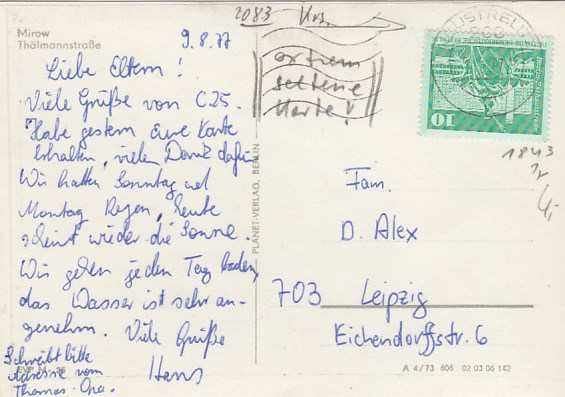 Mirow
Thälmannstraße
9.8.77
Liebe Eltern!
Viele Grüße von C25.
Habe gestern Eure Karte
erhalten, vielen Dank dafür.
Wir hatten Sonntag und
Montag Regen, heute
scheint wieder die Sonne.
Wir gehen jeden Tag baden,
das Wasser ist sehr an-
genehm. Viele Grüße
Hans
Schreibt bitte
Adresse vom
Thomas-Opa.
EVP M
PLANET-VERLAG, BERLIN
2083
extrem
seltene
Karte!
NEUSTREL
10
1843
4,-
Fam.
D. Alex
703 Leipzig
Eichendorffstr. 6
A 4/73 606 02 03 06 142